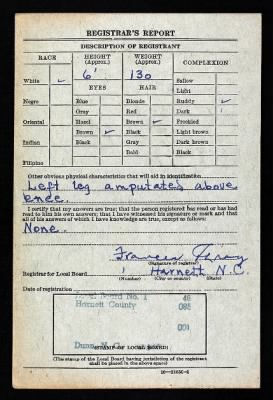 REGISTRAR'S REPORT
DESCRIPTION OF REGISTRANT
RACE HEIGHT (Approx.) WEIGHT (Approx.) COMPLEXION
6' 130 Sallow
White ✓ EYES HAIR Light
Negro Blue Blonde Ruddy ✓
Gray Red Dark
Oriental Hazel Brown ✓ Freckled
Brown ✓ Black Light brown
Indian Black Gray Dark brown
Bald Black
Filipino
Other obvious physical characteristics that will aid in identification
Left leg amputated above
knee.
I certify that my answers are true; that the person registered has read or has had
read to him his own answers; that I have witnessed his signature or mark and that
all of his answers of which I have knowledge are true, except as follows:
None.
Frances
(Signature of registrar)
Registrar for Local Board 1 Harnett N.C.
(Number) (City or county) (State)
Date of registration
Board No. 1 46
Harnett County 085
001
Dunn, N. C.
(STAMP OF LOCAL BOARD)
(The stamp of the Local Board having jurisdiction of the registrant
shall be placed in the above space.)